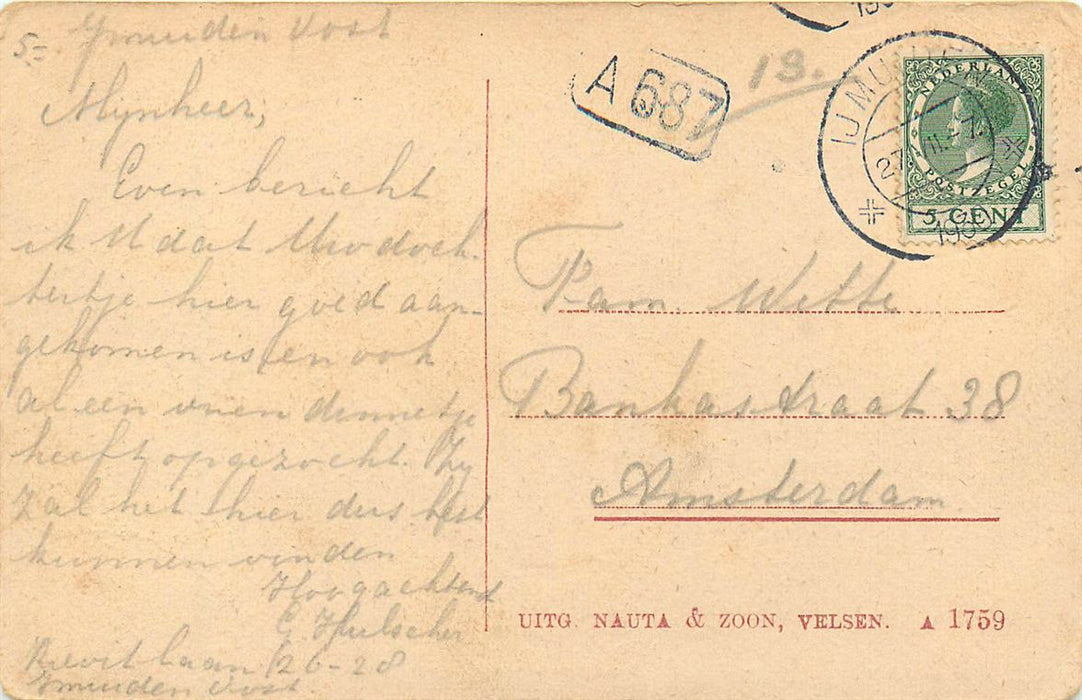 5=
Ymuiden Oost
Mynheer,
Even bericht
ik U dat Uw doch-
tertje hier goed aan-
gekomen is, en ook
al een vrien dinnetje
heeft opgezocht. Zy
zal het hier dus best
kunnen vinden
Hoogachtend
G Hulscher
Kievitlaan 26-28
Ymuiden Oost
A 687
13.
IJMUIDEN
1930
NEDERLAND
POSTZEGEL
5 CENT
Fam. Witte
Bankastraat 38
Amsterdam
UITG. NAUTA & ZOON, VELSEN. A 1759